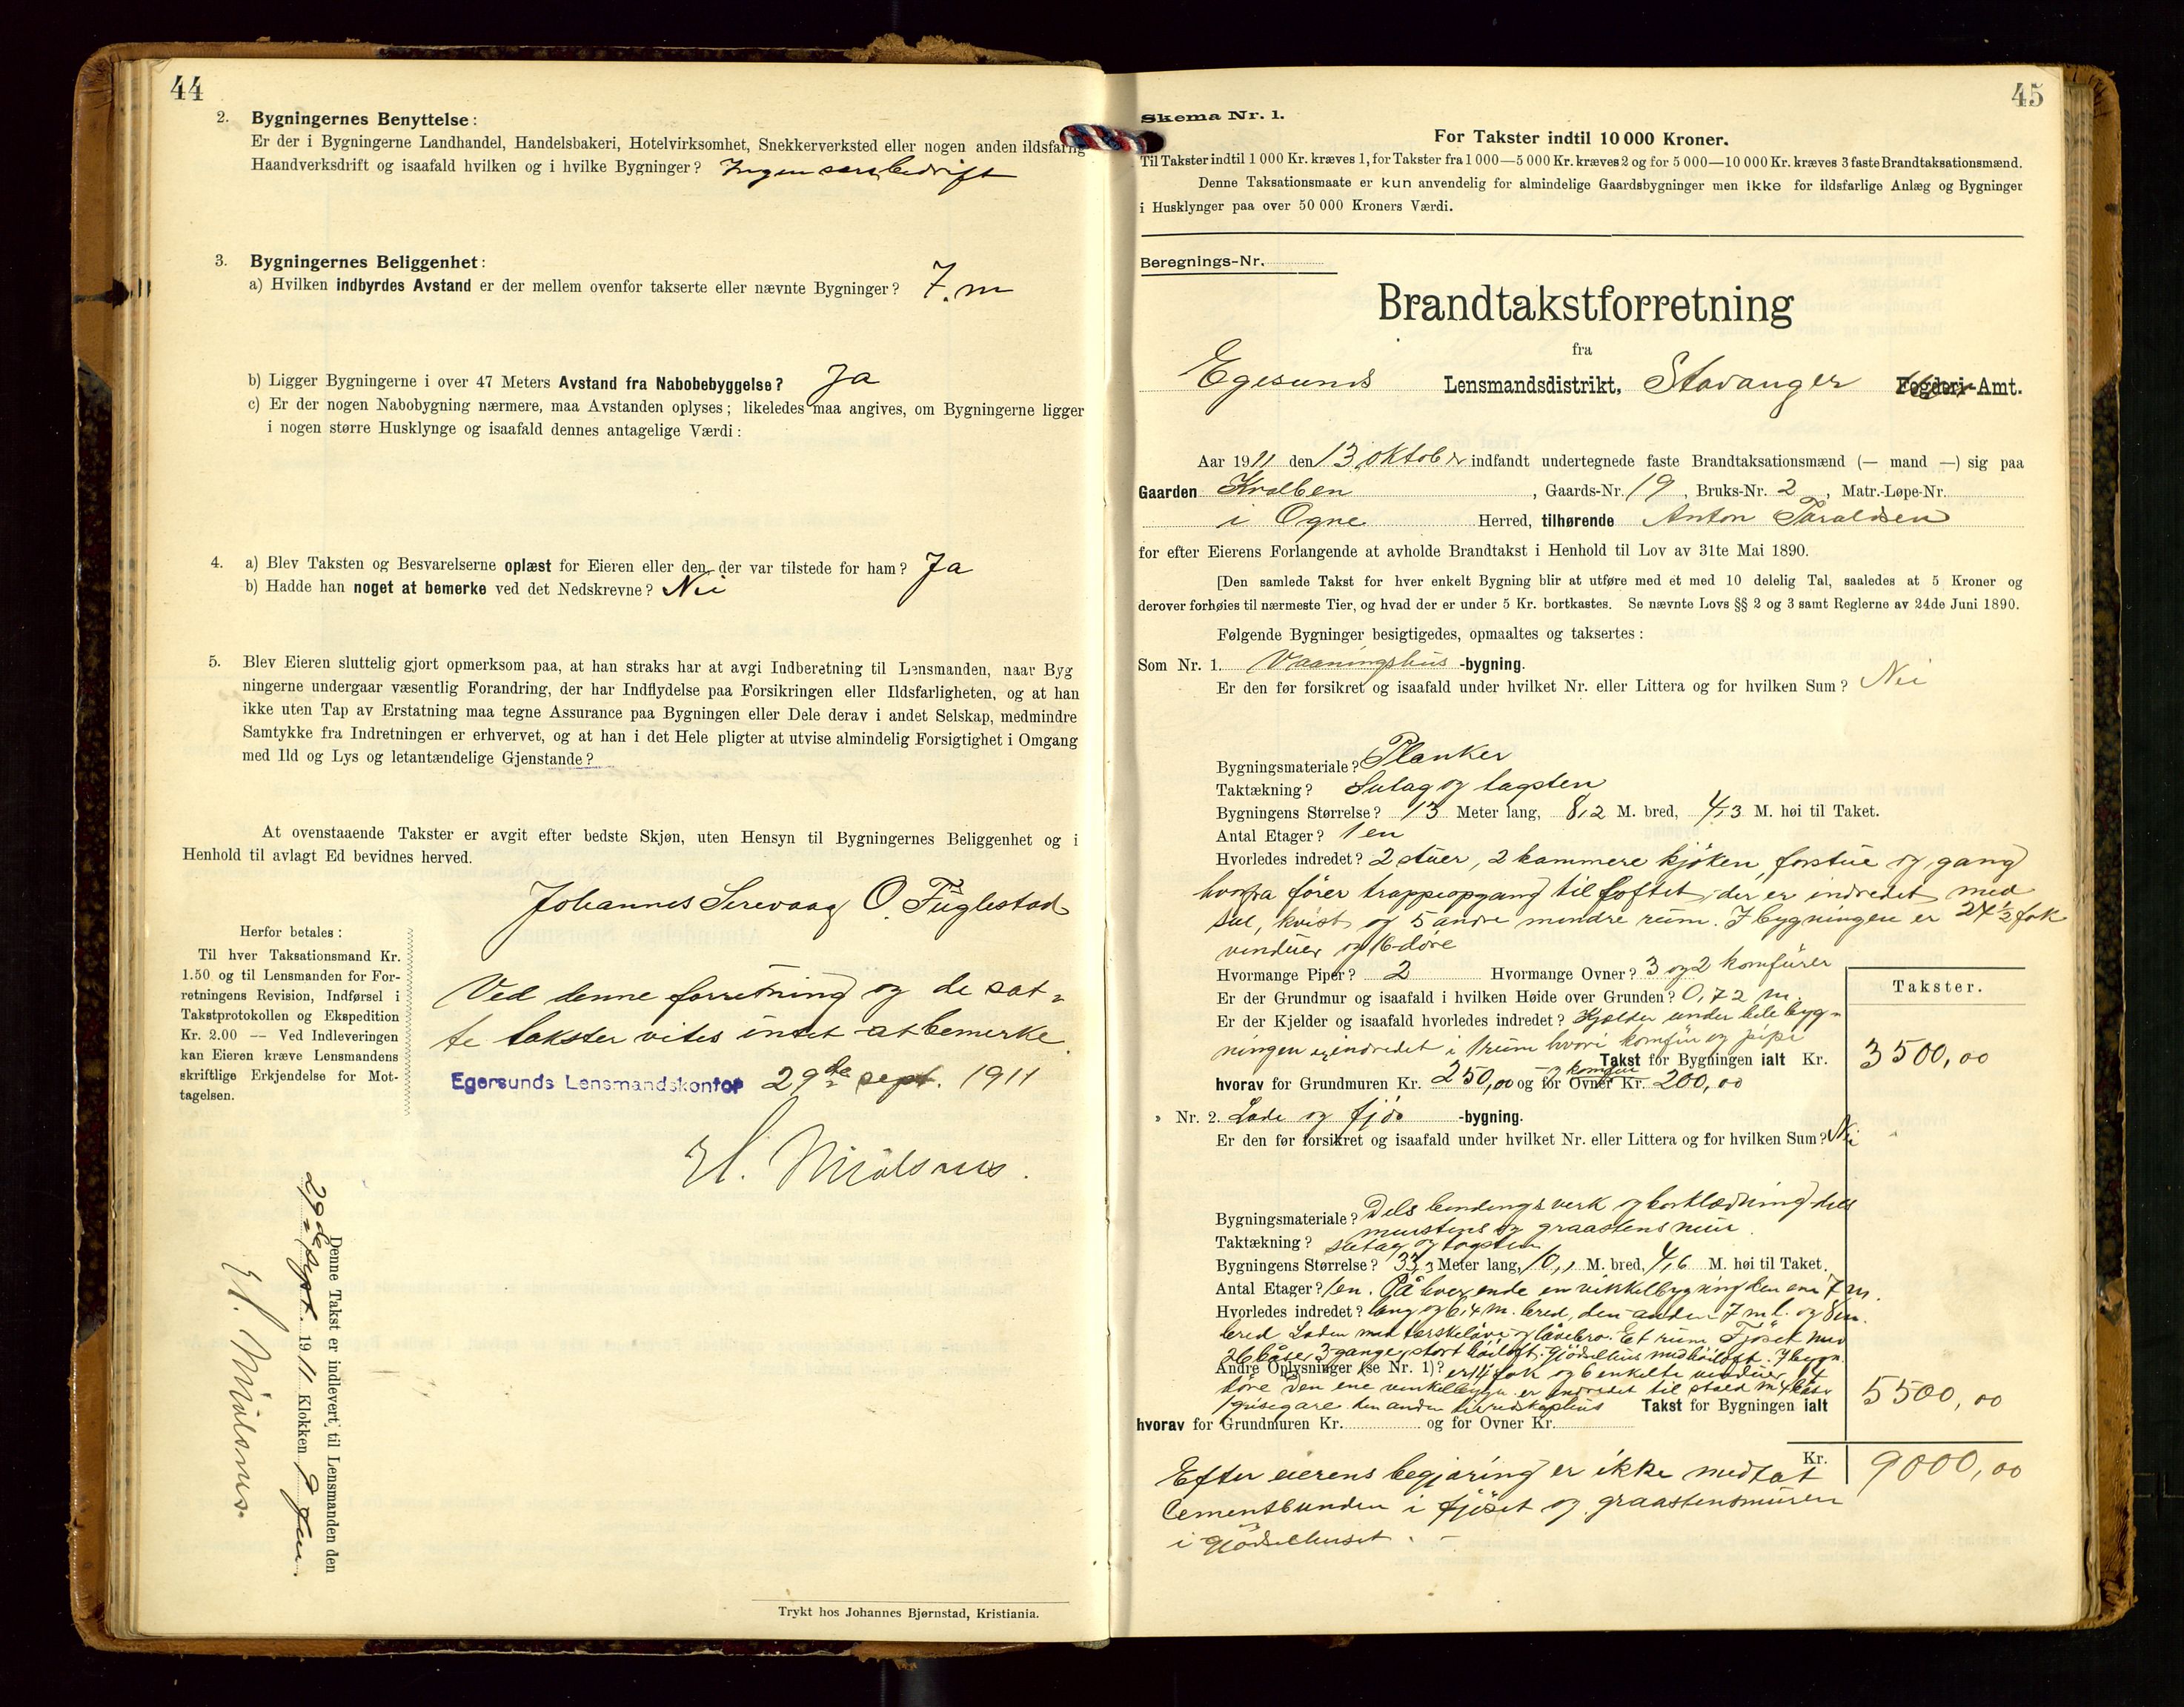 44
2. Bygningernes Benyttelse:
Er der i Bygningerne Landhandel, Handelsbakeri, Hotelvirksomhet, Snekkerverksted eller nogen anden ildsfarlig
Haandverksdrift og isaafald hvilken og i hvilke Bygninger? Ingen saan bedrift
3. Bygningernes Beliggenhet:
a) Hvilken indbyrdes Avstand er der mellem ovenfor takserte eller nævnte Bygninger? 7. m
b) Ligger Bygningerne i over 47 Meters Avstand fra Nabobebyggelse? Ja
c) Er der nogen Nabobygning nærmere, maa Avstanden oplyses; likeledes maa angives, om Bygningerne ligger
i nogen større Husklynge og isaafald dennes antagelige Værdi:
4. a) Blev Taksten og Besvarelserne oplæst for Eieren eller den, der var tilstede for ham? Ja
b) Hadde han noget at bemerke ved det Nedskrevne? Nei
5. Blev Eieren sluttelig gjort opmerksom paa, at han straks har at avgi Indberetning til Lensmanden, naar Byg
ningerne undergaar væsentlig Forandring, der har Indflydelse paa Forsikringen eller Ildsfarligheten, og at han
ikke uten Tap av Erstatning maa tegne Assurance paa Bygningen eller Dele derav i andet Selskap, medmindre
Samtykke fra Indretningen er erhvervet, og at han i det Hele pligter at utvise almindelig Forsigtighet i Omgang
med Ild og Lys og letantændelige Gjenstande?
At ovenstaaende Takster er avgit efter bedste Skjøn, uten Hensyn til Bygningernes Beliggenhet og i
Henhold til avlagt Ed bevidnes herved.
Johannes Sirevaag O. Fuglestad
Herfor betales:
Til hver Taksationsmand Kr.
1.50 og til Lensmanden for For-
retningens Revision, Indførsel i
Takstprotokollen og Ekspedition
Kr. 2.00 — Ved Indleveringen
kan Eieren kræve Lensmandens
skriftlige Erkjendelse for Mot-
tagelsen.
Ved denne forretning og de sat-
te takster vites intet at bemerke.
Egersunds Lensmandskontor 29de sept. 1911
H. Mjølsnes.
Denne Takst er indlevert til Lensmanden den
29de sept. 1911 Klokken 9 fm.
H. Mjølsnes.
Trykt hos Johannes Bjørnstad, Kristiania.
45
Skema Nr. 1.
For Takster indtil 10 000 Kroner.
Til Takster indtil 1 000 Kr. kræves 1, for Takster fra 1 000—5 000 Kr. kræves 2 og for 5 000—10 000 Kr. kræves 3 faste Brandtaksationsmænd.
Denne Taksationsmaate er kun anvendelig for almindelige Gaardsbygninger men ikke for ildsfarlige Anlæg og Bygninger
i Husklynger paa over 50 000 Kroners Værdi.
Beregnings-Nr.
Brandtakstforretning
fra
Egesunds Lensmandsdistrikt, Stavanger Fogderi-Amt.
Aar 1911 den 13 oktober indfandt undertegnede faste Brandtaksationsmænd (— mand —) sig paa
Gaarden Kvalben, Gaards-Nr. 19, Bruks-Nr. 2, Matr.-Løpe-Nr.
i Ogne Herred, tilhørende Anton Taraldsen
for efter Eierens Forlangende at avholde Brandtakst i Henhold til Lov av 31te Mai 1890.
[Den samlede Takst for hver enkelt Bygning blir at utføre med et med 10 delelig Tal, saaledes at 5 Kroner og
derover forhøies til nærmeste Tier, og hvad der er under 5 Kr. bortkastes. Se nævnte Lovs §§ 2 og 3 samt Reglerne av 24de Juni 1890.
Følgende Bygninger besigtigedes, opmaaltes og taksertes:
Som Nr. 1. Vaaningshus -bygning.
Er den før forsikret og isaafald under hvilket Nr. eller Littera og for hvilken Sum? Nei
Bygningsmateriale? Planker
Taktækning? Sutag og tagsten
Bygningens Størrelse? 13 Meter lang, 8,2 M. bred, 4,3 M. høi til Taket.
Antal Etager? 1 en
Hvorledes indredet? 2 stuer, 2 kammere kjøken, forstue og gang
hvorfra fører trappeopgang til loftet, der er indredet med
sal, kvist og 5 andre mindre rum. I bygningen er 24½ fak
vinduer og 16 døre
Hvormange Piper? 2 Hvormange Ovner? 3 og 2 komfürer
Er der Grundmur og isaafald i hvilken Høide over Grunden? 0,72 m
Er der Kjelder og isaafald hvorledes indredet? Kjelder under hele byg-
ningen er indredet i 1 rum hvori komfür og pipe
Takster.
Takst for Bygningen ialt Kr. 3500,00
hvorav for Grundmuren Kr. 250,00 og for 2 komfür Ovner Kr. 200,00
» Nr. 2. Lade og fjøs -bygning.
Er den før forsikret og isaafald under hvilket Nr. eller Littera og for hvilken Sum? Nei
Bygningsmateriale? Dels bindingsverk og bordklædning dels
murstens og graastens mur
Taktækning? sutag og tagsten
Bygningens Størrelse? 33,3 Meter lang, 10,1 M. bred, 4,6 M. høi til Taket.
Antal Etager? 1 en. På hver ende en vinkelbygning den ene 7 m.
Hvorledes indredet? lang og 6,4 m. bred, den anden 7 m l. og 8 m.
bred Laden med terskelåve og låvebro. Et rum Fjøset med
26 båser, 3 gange, stort høiloft. Gjødselhus med høiloft. I bygn.
Andre Oplysninger (se Nr. 1)? er 14 fak og 6 enkelte vinduer, 14
døre Den ene vinkelbygn. er indredet til stald m 4 båse
1 grisegare den anden til redskapshus Takst for Bygningen ialt 5500,00
hvorav for Grundmuren Kr. og for Ovner Kr.
Kr. 9000,00
Efter eierens begjæring er ikke medtat
Cementbunden i fjøset og graastensmuren
i Gjødselhuset.